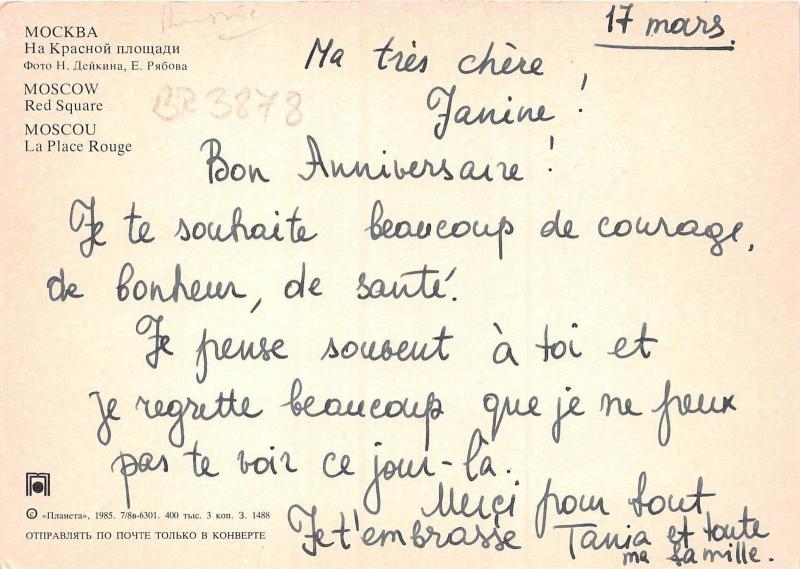 Russie
17 mars.
МОСКВА
На Красной площади
Фото Н. Дейкина, Е. Рябова
MOSCOW
Red Square
MOSCOU
La Place Rouge
BR3878
Ma très chère
Janine !
Bon Anniversaire !
Je te souhaite beaucoup de courage,
de bonheur, de santé.
Je pense souvent à toi et
je regrette beaucoup que je ne peux
pas te voir ce jour-là.
Merçi pour tout
Je t'embrasse Tania et toute
ma famille.
© «Планета», 1985. 7/8в-6301. 400 тыс. 3 коп. З. 1488
ОТПРАВЛЯТЬ ПО ПОЧТЕ ТОЛЬКО В КОНВЕРТЕ